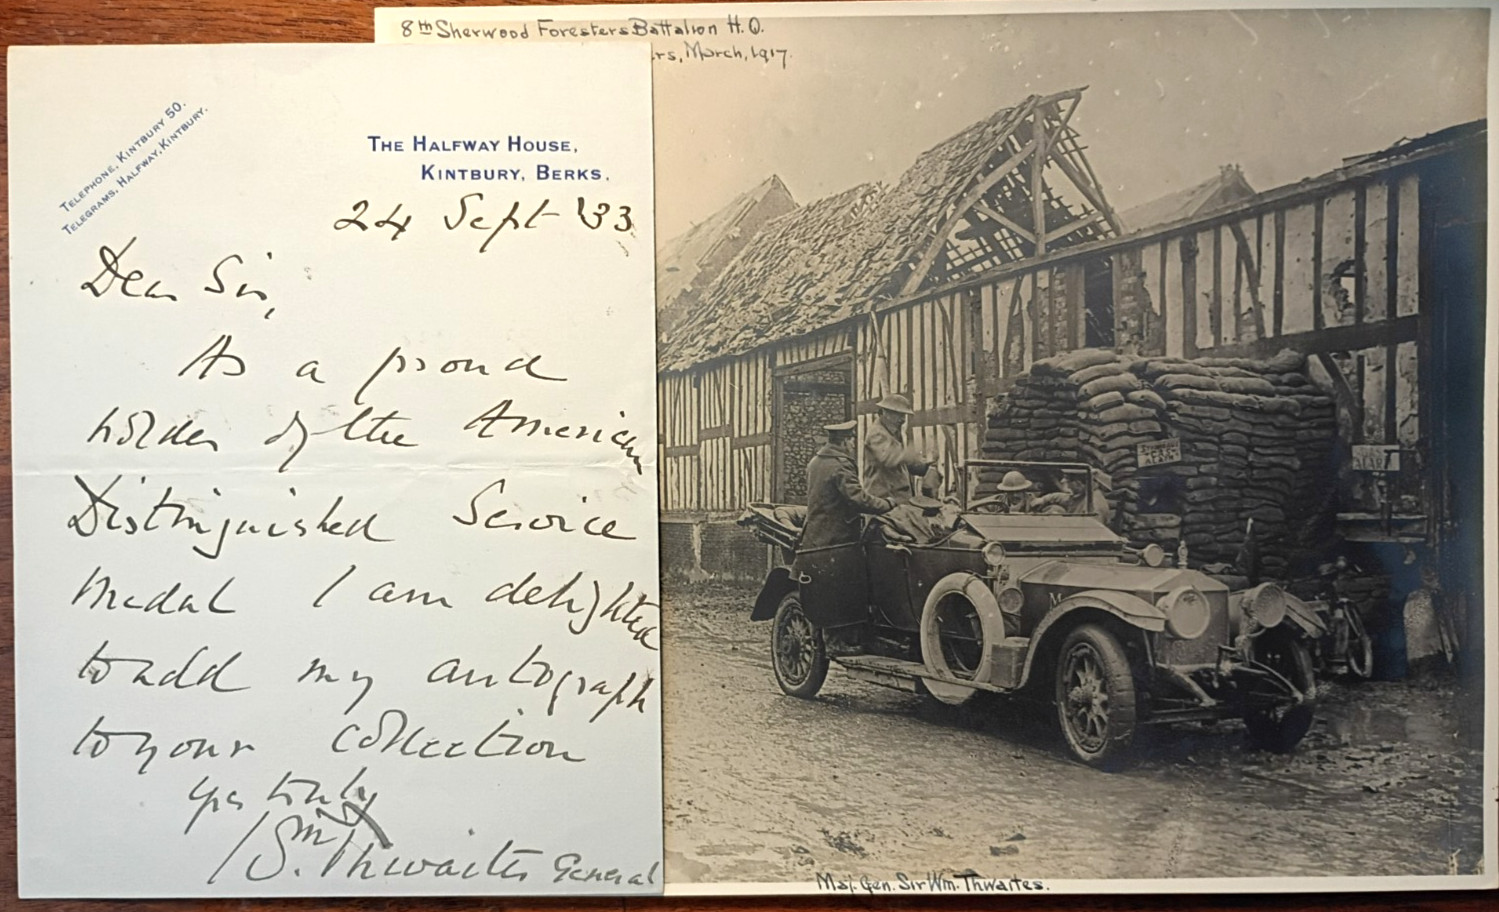 8th Sherwood Foresters Battalion H.Q.
rs, March, 1917.
TELEPHONE, KINTBURY 50.
TELEGRAMS, HALFWAY, KINTBURY.
THE HALFWAY HOUSE,
KINTBURY, BERKS.
24 Sept '33
Dear Sir,
As a proud
holder of the American
Distinguished Service
Medal I am delighted
to add my autograph
to your collection
Yrs truly
Wm Thwaites General
M
APART
Maj. Gen. Sir Wm. Thwaites.